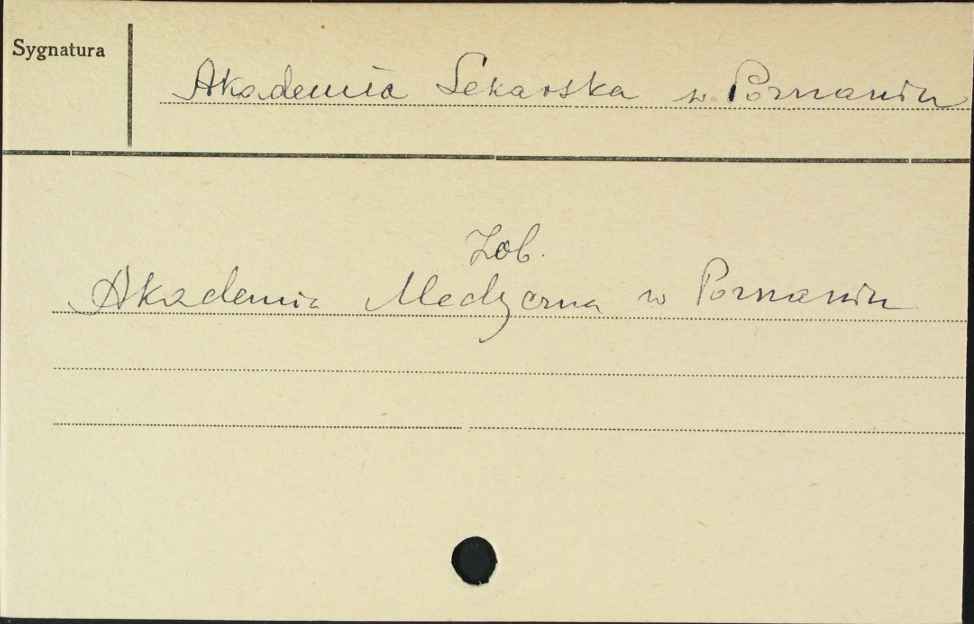 Sygnatura
Akademia Lekarska w Poznaniu
Zob.
Akademia Medyczna w Poznaniu